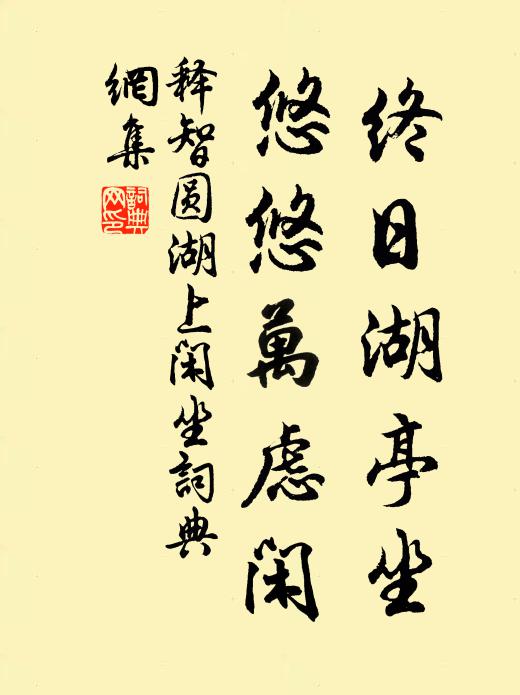 终日湖亭坐
悠悠萬慮閑
释智圆湖上闲坐詞典
網集
詞典
网印